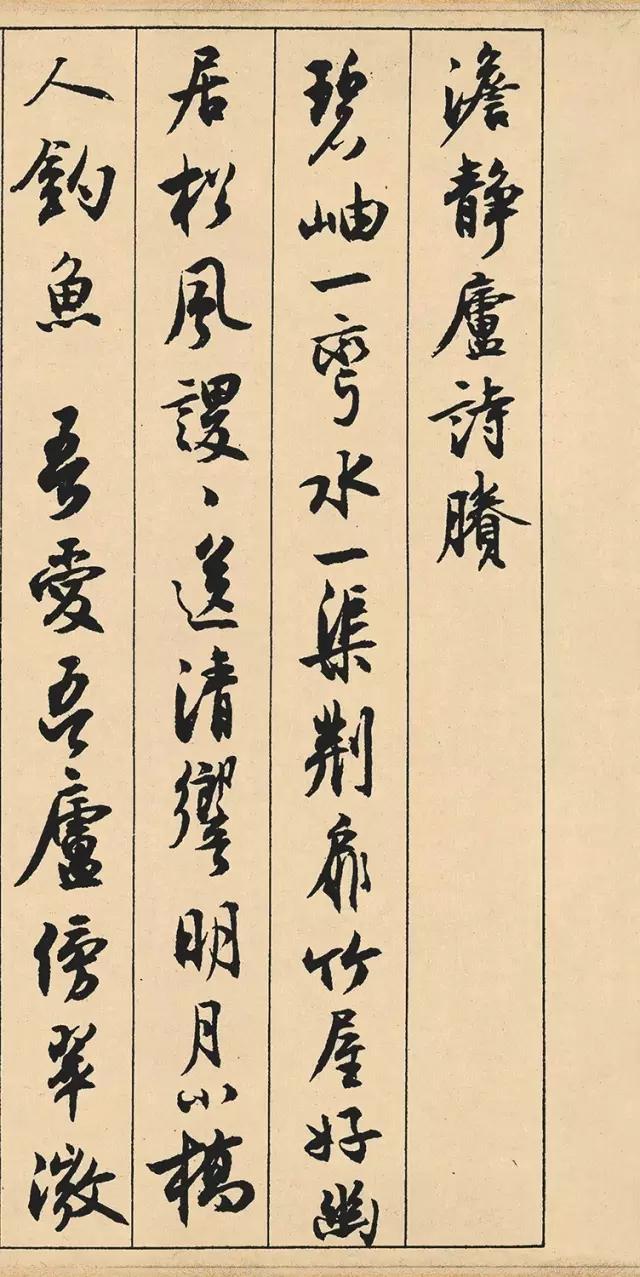 澹靜廬詩賸
碧岫一彎水一渠荆扉竹屋好幽
居松風謖〻送清響明月小橋
人釣魚 吾愛吾廬傍翠微